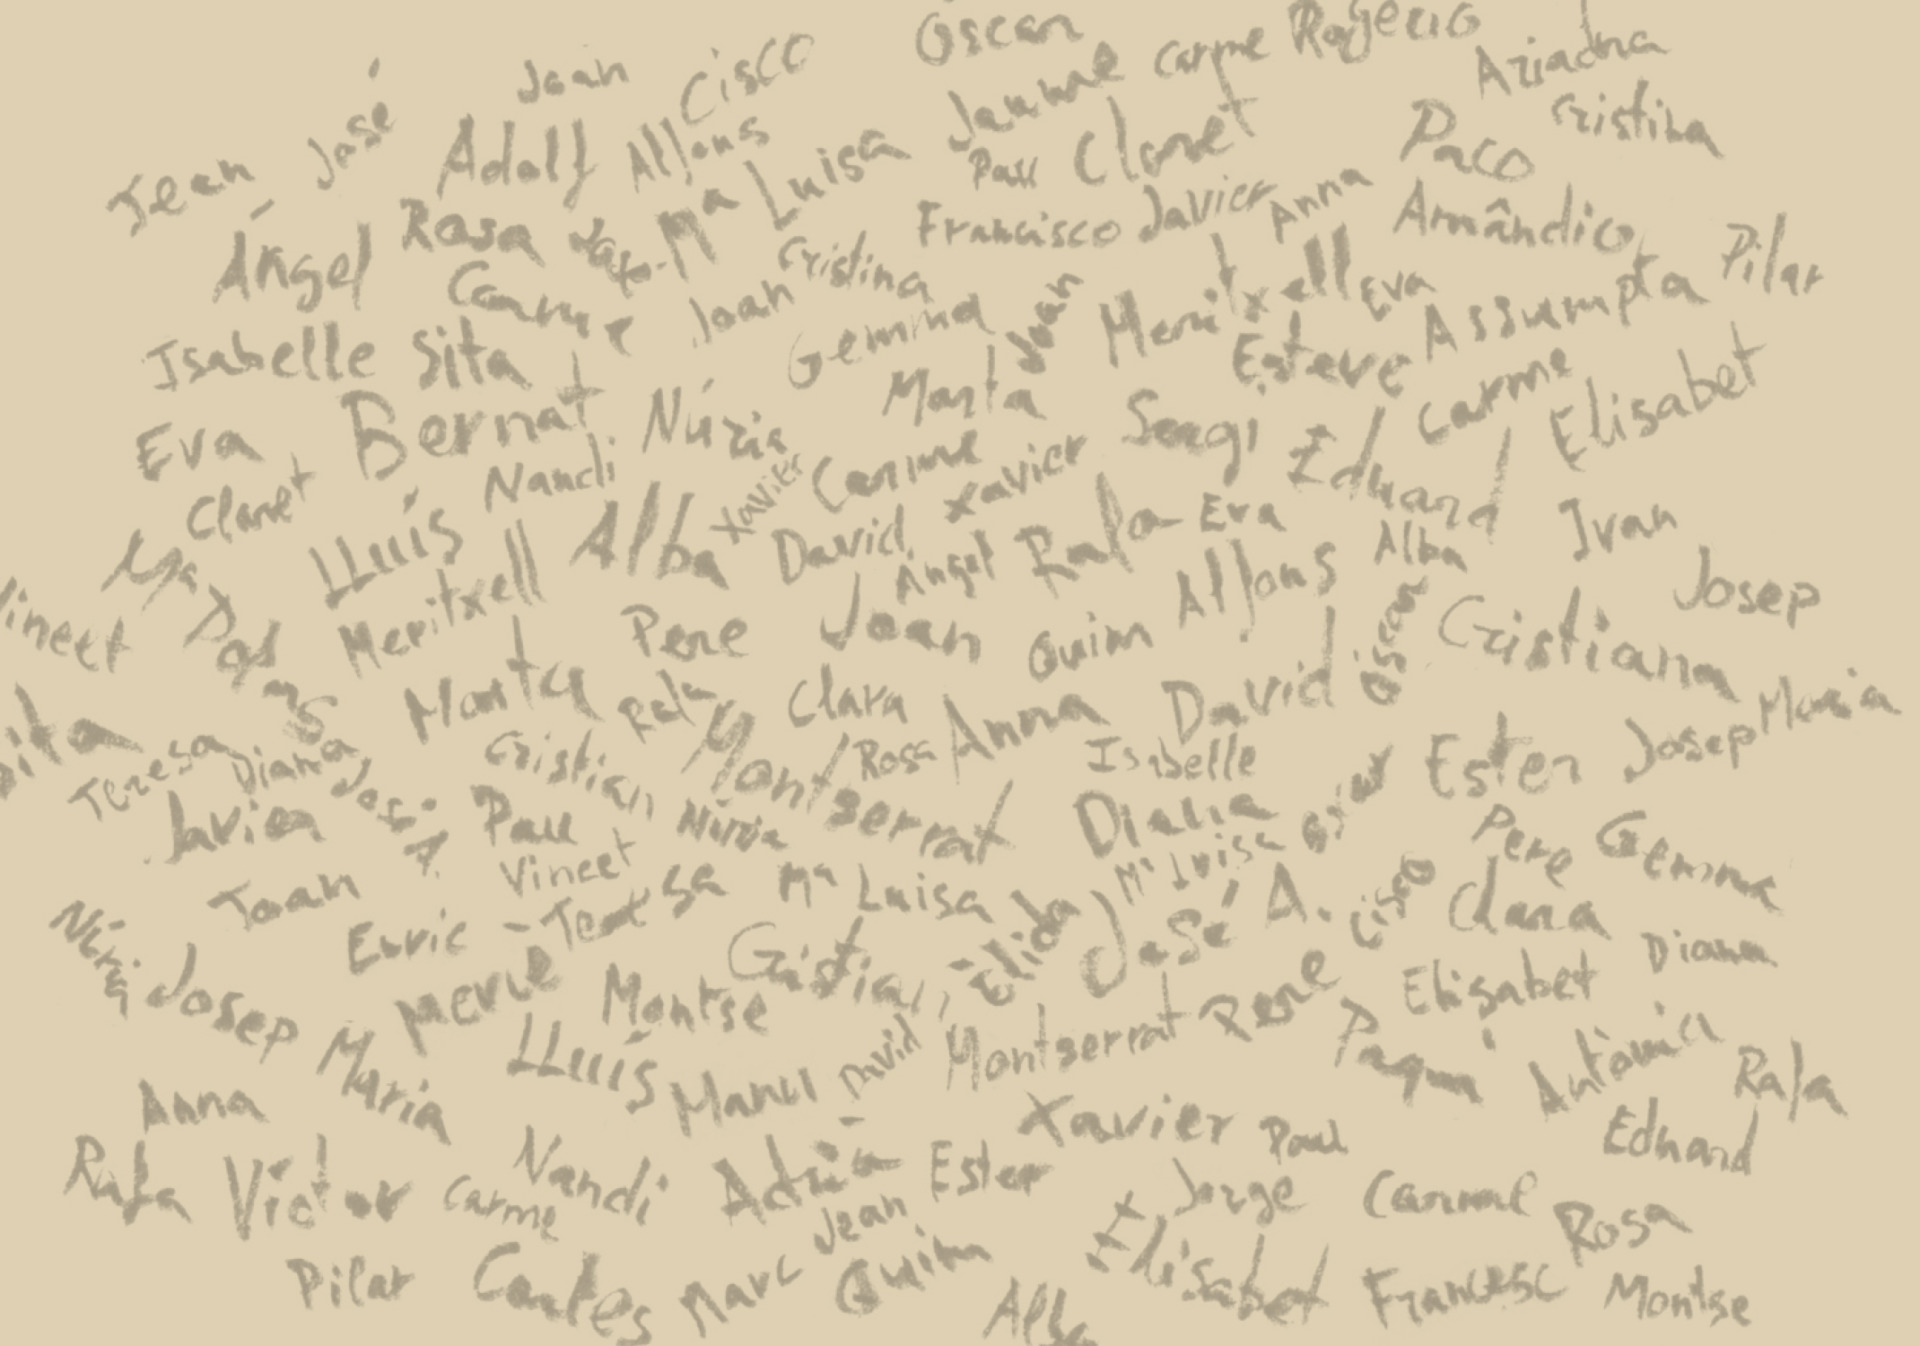 Òscar
Carme
Rogerio
Ariadna
Joan
Cisco
Jaume
Cristina
José
Adolf
Alfons
Luisa
Pau
Claret
Paco
Jean
Mª
Javier
Anna
Amândio
Àngel
Rosa
Francisco
Pilar
Carme
Joan
Cristina
Joan
Meritxell
Eva
Assumpta
Isabelle
Sita
Gemma
Marta
Esteve
Carme
Elisabet
Eva
Bernat
Núria
Carme
Sergi
Eduard
Claret
Nandi
Xavier
Xavier
Lluís
Alba
David
Àngel
Rafa
Eva
Alba
Ivan
Mª
Meritxell
Pere
Joan
Quim
Alfons
Òscar
Josep
Vineet
Dolors
Cristiana
Marta
Rafa
Clara
Anna
David
Josep Maria
Sita
Teresa
Diana
Cristian
Montserrat
Rosa
Isabelle
Òscar
Ester
Javier
José A.
Pau
Núria
Dialia
Pere
Gemma
Joan
Vineet
Teresa
Mª Luisa
Mª Luisa
Cisco
Clara
Núria
Enric
Mercè
Cristian
Èlida
José A.
Diana
Josep
Montse
Pere
Elisabet
Maria
Lluís
Manu
David
Montserrat
Paqui
Antònia
Rafa
Anna
Xavier
Pau
Eduard
Rafa
Víctor
Carme
Nandi
Adrià
Ester
Jorge
Carme
Rosa
Pilar
Carles
Marc
Jean
Quim
Elisabet
Francesc
Montse
Alba